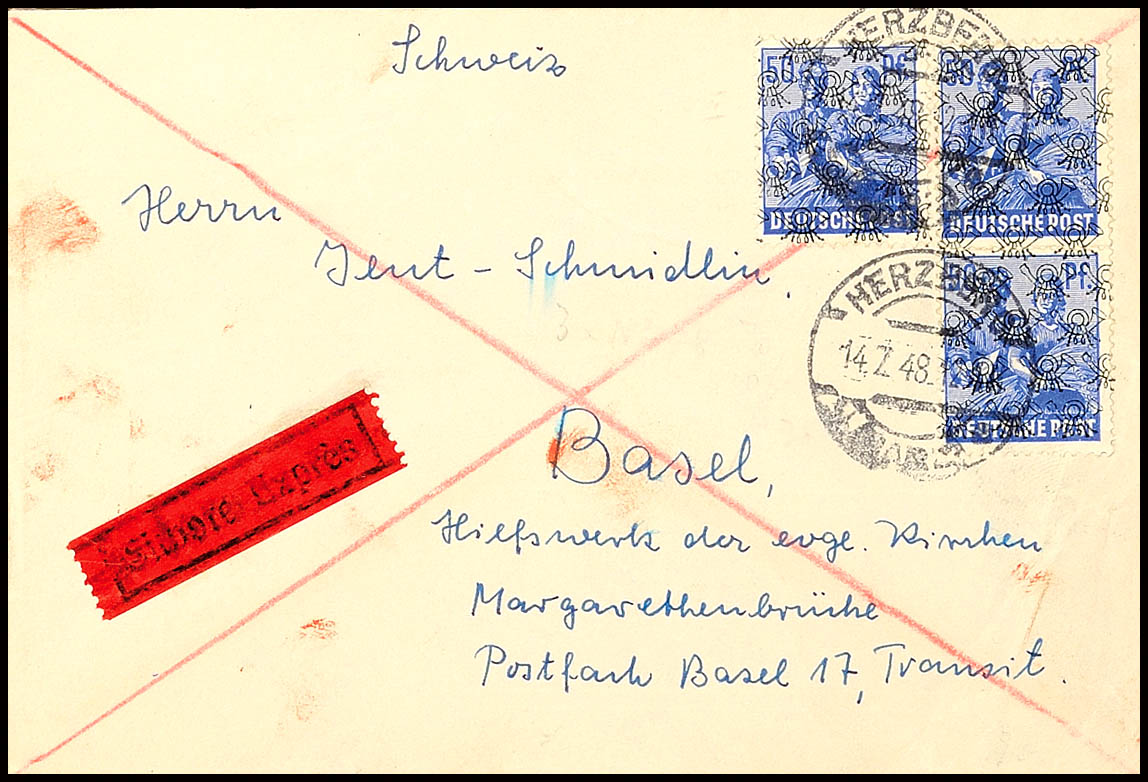 Schweiz
Herrn
Jent - Schmidlin.
Basel,
Hilfswerk der evge. Kirchen
Margarethenbrücke
Postfach Basel 17, Transit.
Exprès
50 Pf.
DEUTSCHE POST
50 Pf.
DEUTSCHE POST
50 Pf.
DEUTSCHE POST
14.7.48.